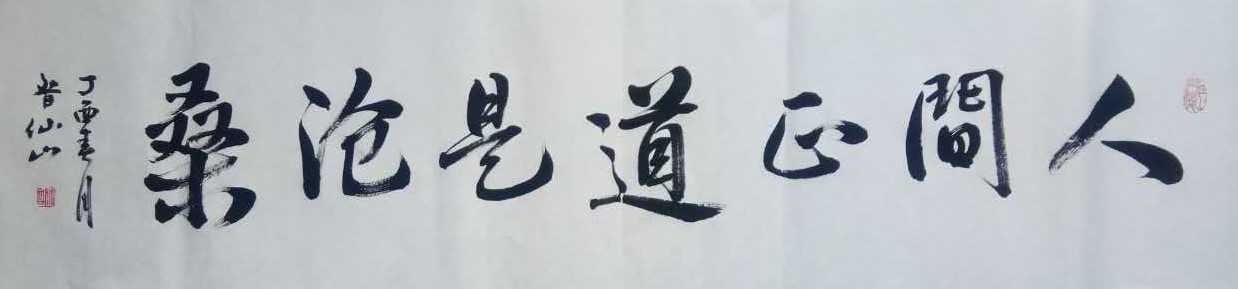 人間正道是沧桑
丁酉春月
昔仙山